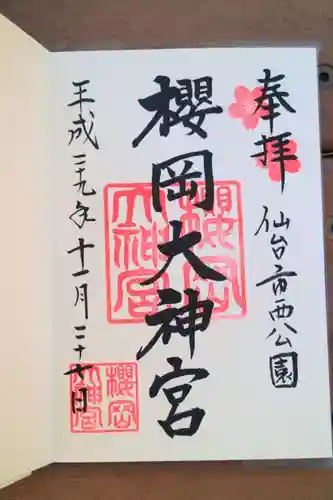 奉拝
仙台市西公園
櫻岡大神宮
櫻岡
大神宮
平成二十九年十一月二十七日
櫻岡
大神宮